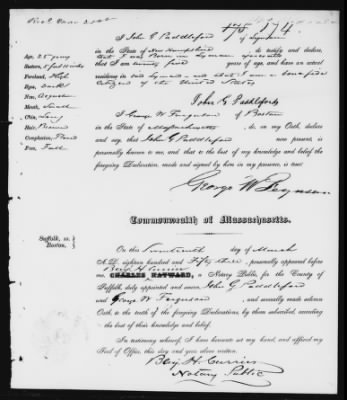 I John G Paddleford of Lyman
in the State of New Hampshire do testify and declare,
that I was Born in Lyman
that I am twenty five years of age, and have an actual
residence in said Lyman and that I am a bonafide
citizen of the United States
Age, 25 years
Forehead, High
Eyes, dark
Nose, Aquiline
Mouth, Small
Chin, Long
Hair, Brown
Face, Full
John G Paddleford
I George W Ferguson of Boston
in the State of Massachusetts do, on my Oath, declare
and say, that John G Paddleford now present, is
personally known to me, and that to the best of my knowledge and belief
the foregoing Declaration, made and signed by him in my presence, is true:
George W Ferguson
Commonwealth of Massachusetts.
Suffolk, ss.
Boston,
On this day of March
A.D. eighteen hundred and Fifty three, personally appeared before
Benj H Currier
CHARLES HAYWARD, a Notary Public for the County of
Suffolk, duly appointed and sworn, John G Paddleford
and George W Ferguson and severally made solemn
Oath to the truth of the foregoing Declarations, by them subscribed, according
to the best of their knowledge and belief.
In testimony whereof, I have hereunto set my hand, and affixed my
Seal of Office, this day and year above written.
Benj. H. Currier
Notary Public